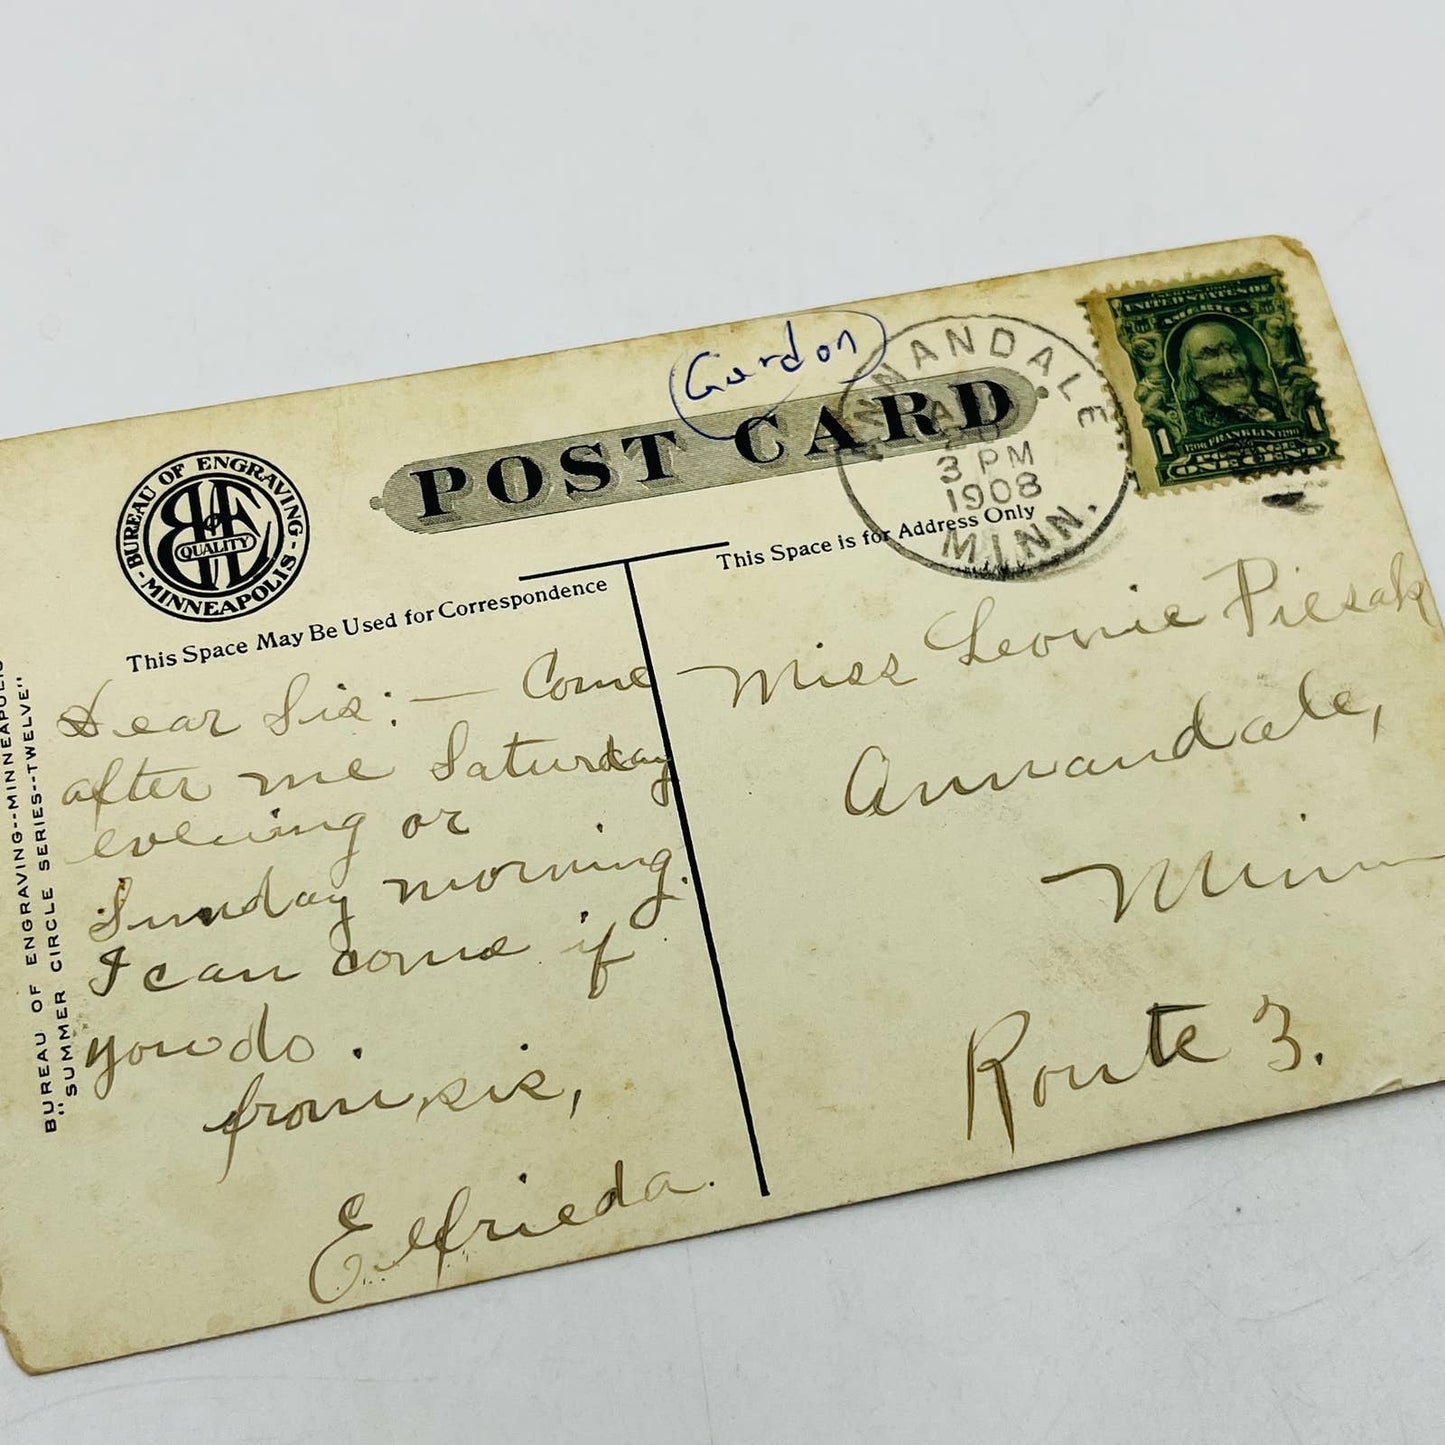 Gordon
POST CARD
ANNANDALE
3 PM
1908
MINN.
UNITED STATES OF
AMERICA
1 1
FRANKLIN
POSTAGE
ONE CENT
BUREAU OF ENGRAVING
QUALITY
-MINNEAPOLIS-
This Space May Be Used for Correspondence
This Space is for Address Only
Dear Sis:— Come
after me Saturday
evening or
Sunday morning.
I can come if
you do.
from sis,
Elfrieda.
Miss Leonie
Annandale,
Minn
Route 3.
BUREAU OF ENGRAVING--MINNEAPOLIS
"SUMMER CIRCLE SERIES--TWELVE"